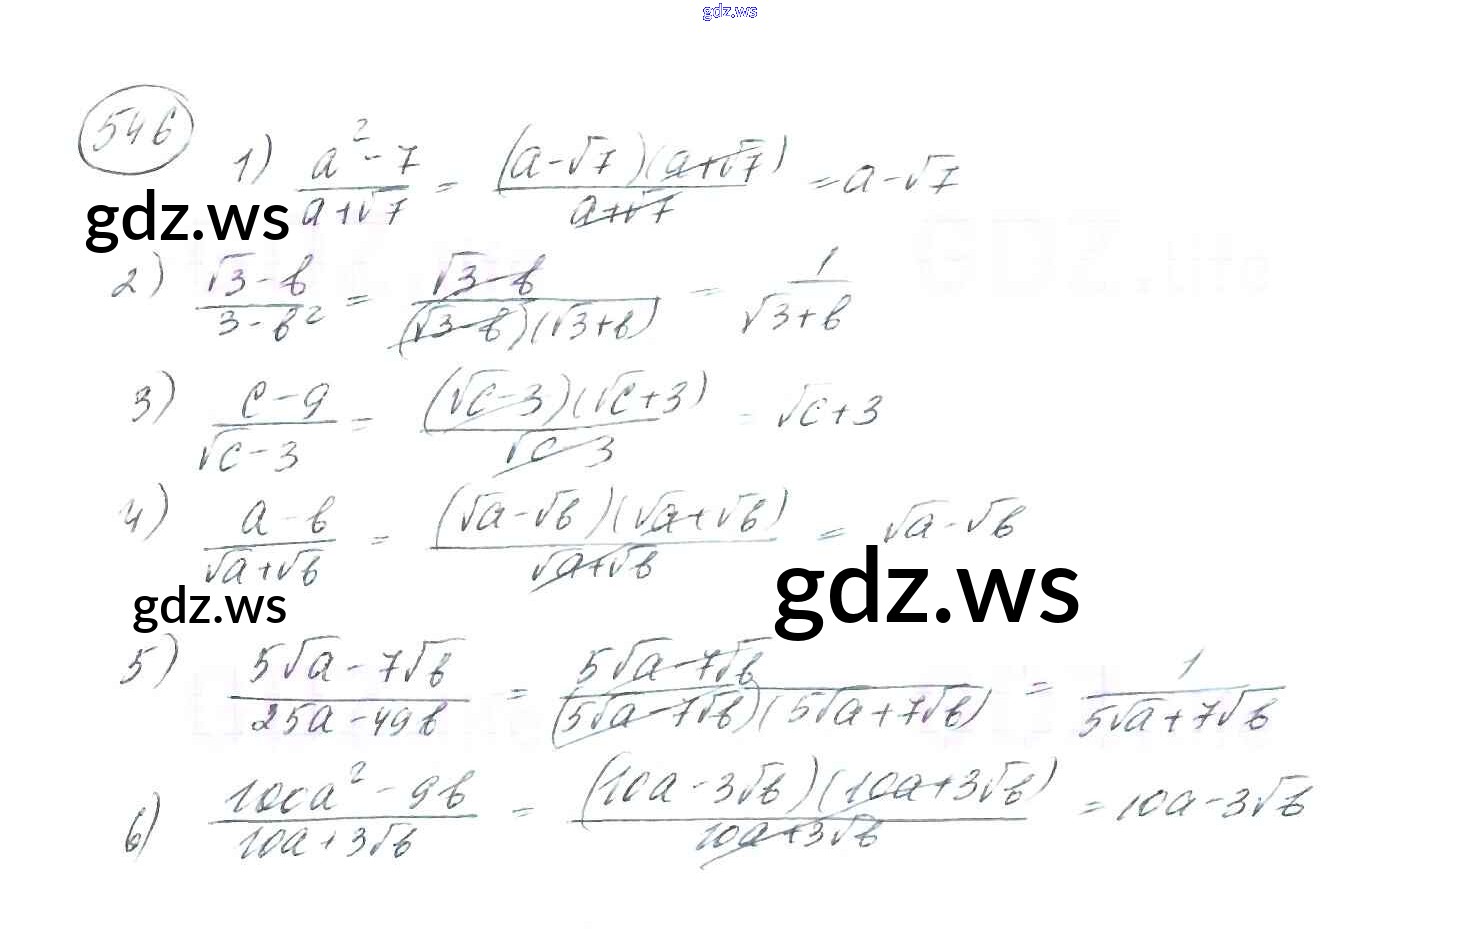 gdz.ws
546
1) (a² - 7)/(a+√7) = ((a-√7)(a+√7))/(a+√7) = a-√7
gdz.ws
2) (√3 - b)/(3 - b²) = (√3 - b)/((√3 - b)(√3+b)) = 1/(√3+b)
3) (c - 9)/(√c - 3) = ((√c - 3)(√c+3))/(√c - 3) = √c+3
4) (a - b)/(√a+√b) = ((√a - √b)(√a+√b))/(√a+√b) = √a - √b
gdz.ws
gdz.ws
5) (5√a - 7√b)/(25a - 49b) = (5√a - 7√b)/((5√a - 7√b)(5√a+7√b)) = 1/(5√a+7√b)
6) (100a² - 9b)/(10a+3√b) = ((10a - 3√b)(10a+3√b))/(10a+3√b) = 10a - 3√b